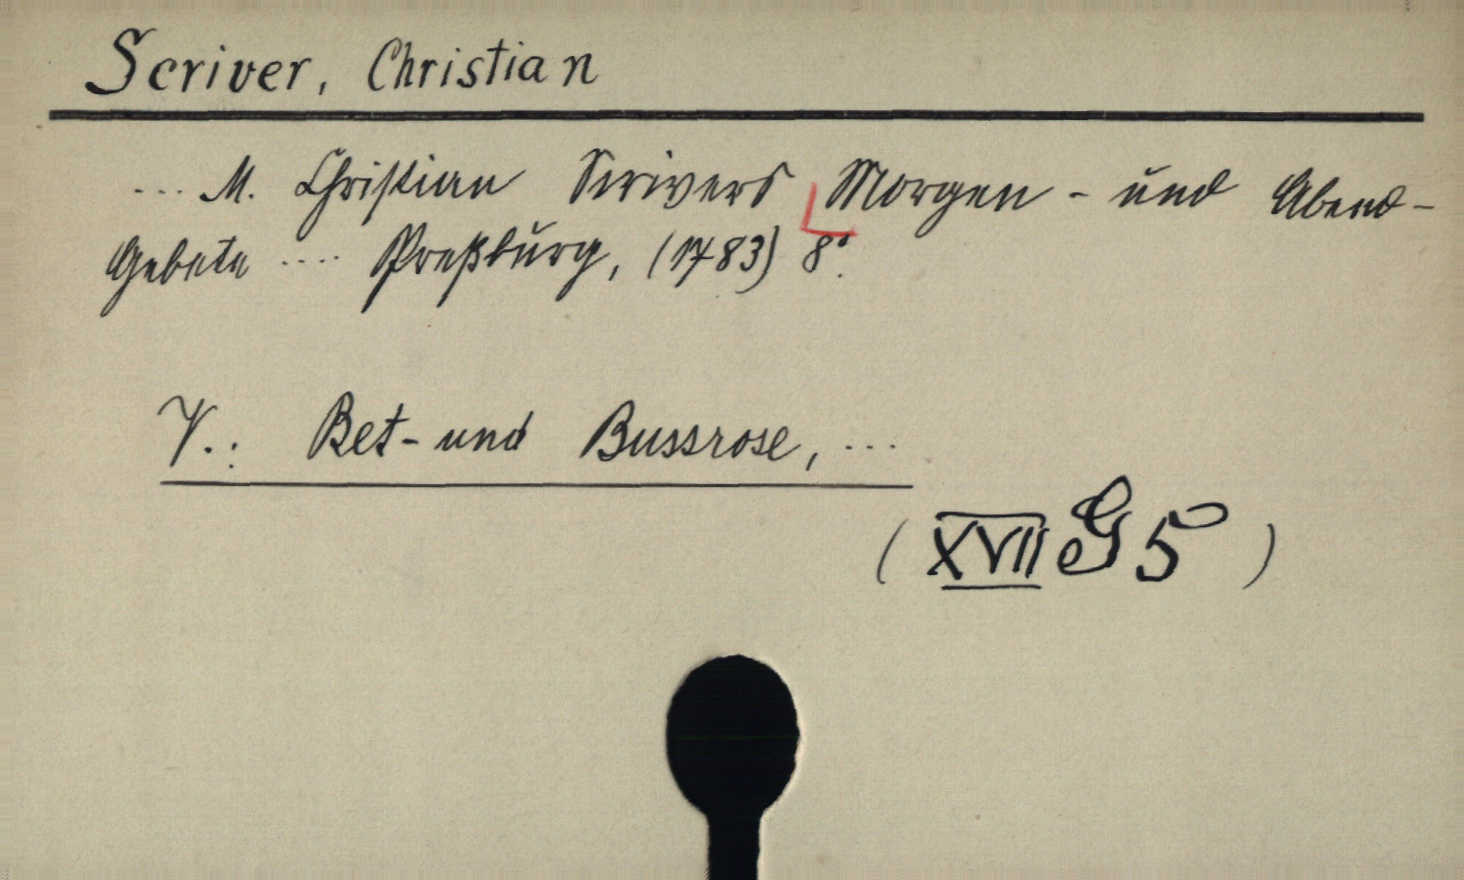 Scriver, Christian
... M. Christian Scrivers Morgen - und Abend-
Gebete .... Preßburg, (1783) 8°.
V.: Bet- und Bussrose, ...
( XVII G 5 )